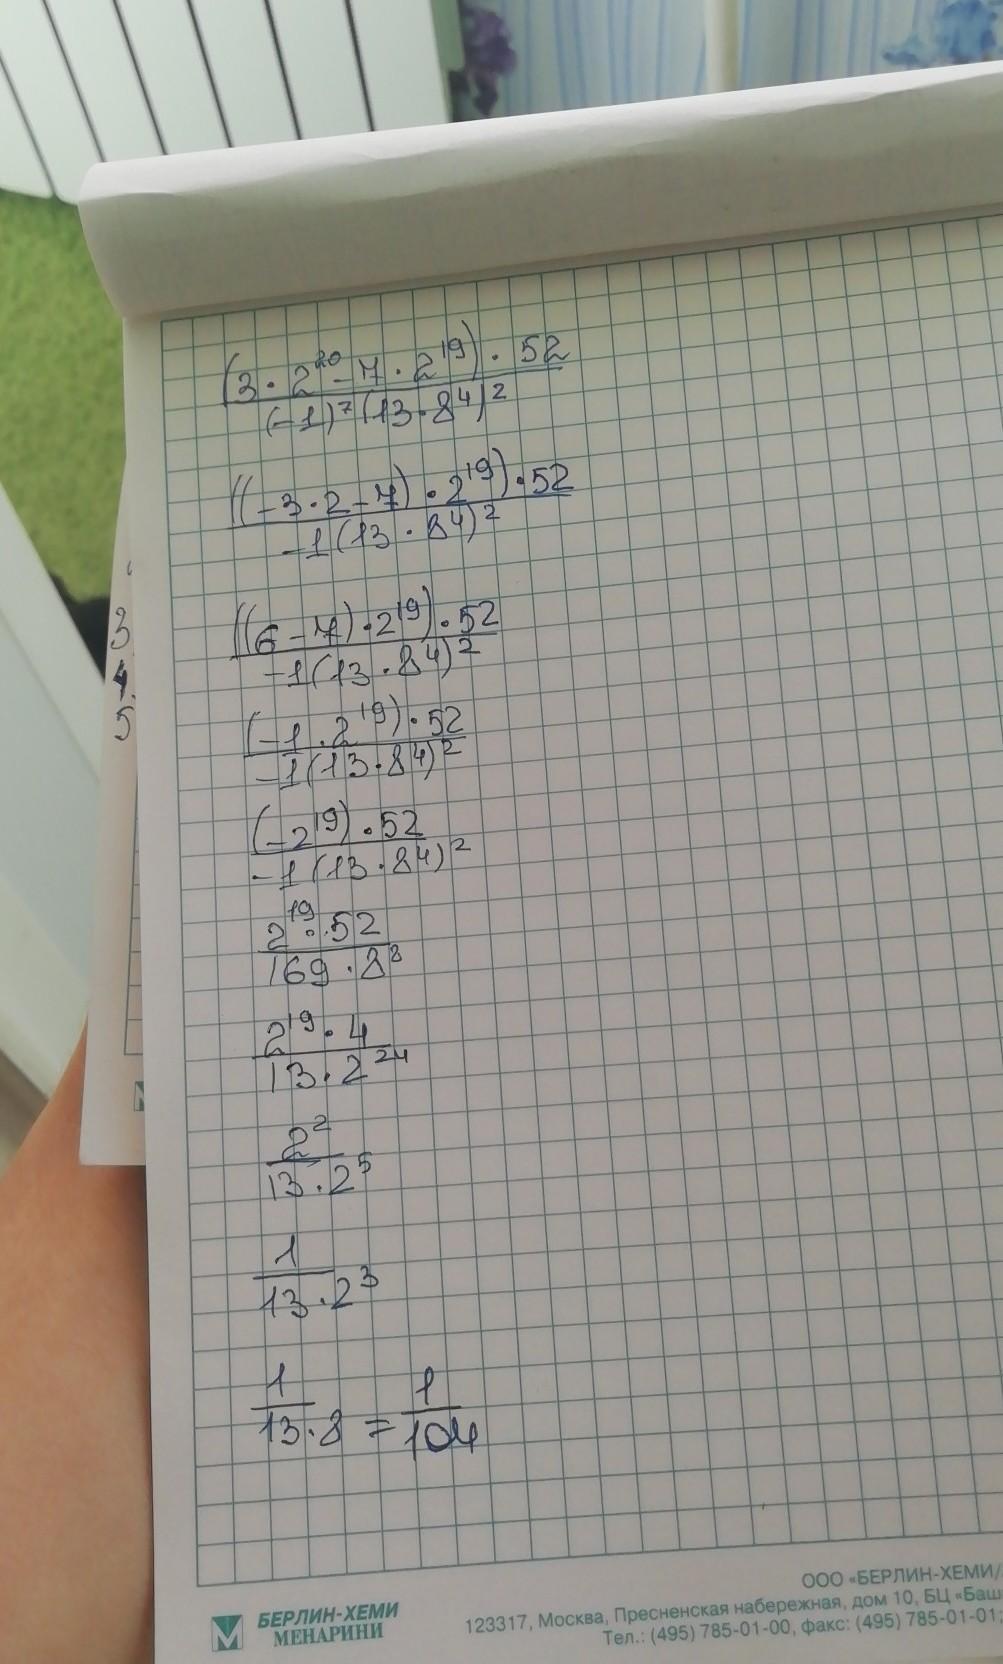 (3 · 2²⁰ - 7 · 2¹⁹) · 52
(-1)⁷ (13 · 8⁴)²
((-3 · 2 - 7) · 2¹⁹) · 52
-1 (13 · 8⁴)²
((6 - 7) · 2¹⁹) · 52
-1 (13 · 8⁴)²
(-1 · 2¹⁹) · 52
-1 (13 · 84)²
(-2¹⁹) · 52
-1 (13 · 84)²
2¹⁹ · 52
169 · 8⁸
2¹⁹ · 4
13 · 2²⁴
2²
13 · 2⁵
1
13 · 2³
1/13 · 8 = 1/104
3
4.
5
БЕРЛИН-ХЕМИ
МЕНАРИНИ
ООО «БЕРЛИН-ХЕМИ/
123317, Москва, Пресненская набережная, дом 10, БЦ «Баш
Тел.: (495) 785-01-00, факс: (495) 785-01-01;